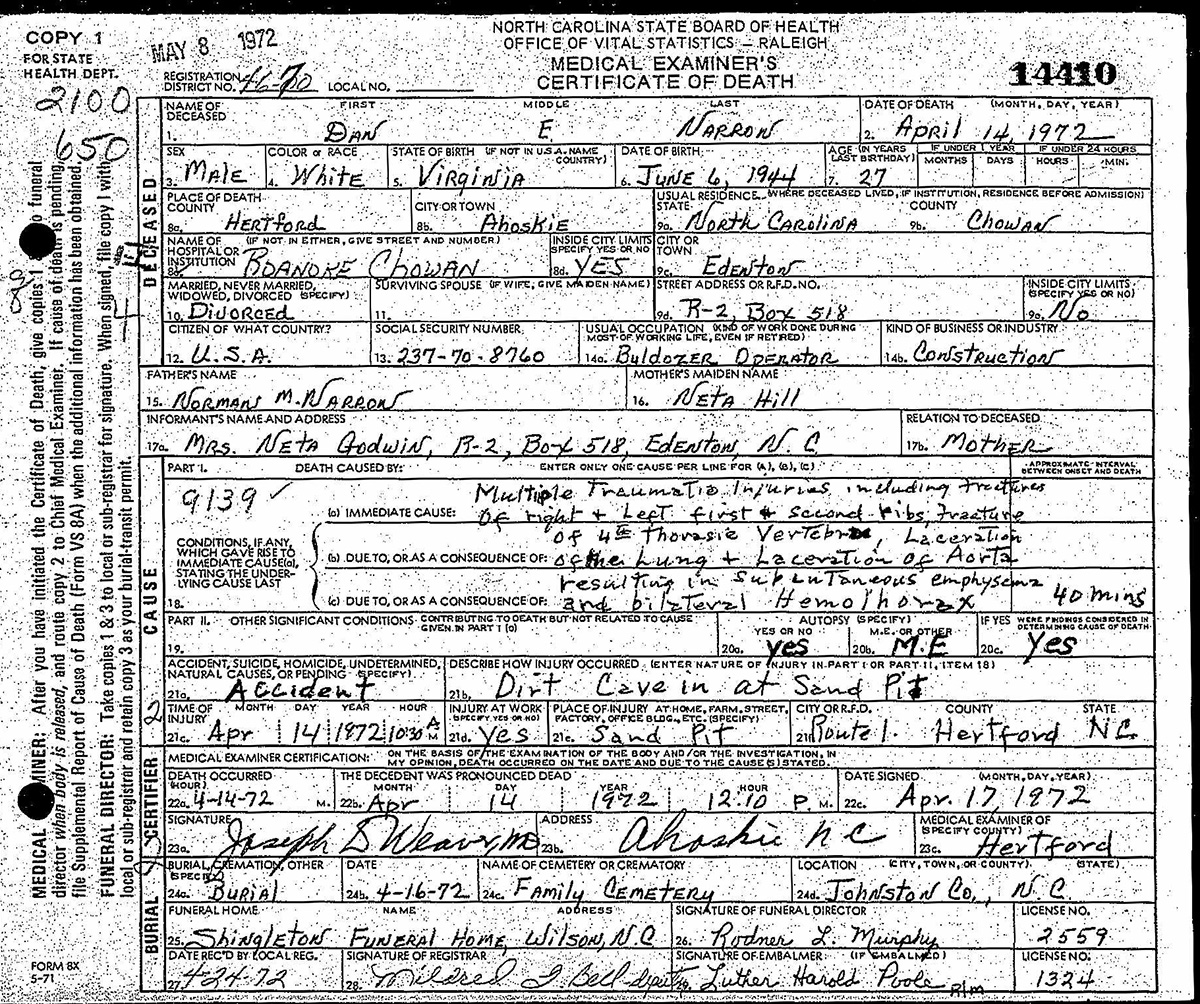 COPY 1
FOR STATE
HEALTH DEPT.
MAY 8 1972
NORTH CAROLINA STATE BOARD OF HEALTH
OFFICE OF VITAL STATISTICS – RALEIGH
MEDICAL EXAMINER'S
CERTIFICATE OF DEATH
14410
REGISTRATION DISTRICT NO. 46-70 LOCAL NO.
2100
650
DECEASED
NAME OF DECEASED FIRST MIDDLE LAST DATE OF DEATH (MONTH, DAY, YEAR)
1. DAN E NARRON 2. April 14, 1972
SEX COLOR or RACE STATE OF BIRTH (IF NOT IN U.S.A. NAME COUNTRY) DATE OF BIRTH AGE (IN YEARS LAST BIRTHDAY) IF UNDER 1 YEAR IF UNDER 24 HOURS
MONTHS DAYS HOURS MIN.
3. MALE 4. White 5. VIRGINIA 6. JUNE 6, 1944 7. 27
PLACE OF DEATH COUNTY CITY OR TOWN USUAL RESIDENCE (WHERE DECEASED LIVED, IF INSTITUTION, RESIDENCE BEFORE ADMISSION) STATE COUNTY
8a. Hertford 8b. Ahoskie 9a. NORTH CAROLINA 9b. Chowan
NAME OF HOSPITAL OR INSTITUTION (IF NOT IN EITHER, GIVE STREET AND NUMBER) INSIDE CITY LIMITS SPECIFY YES OR NO CITY OR TOWN
ROANOKE CHOWAN 8d. YES 9c. EDENTON
MARRIED, NEVER MARRIED, WIDOWED, DIVORCED (SPECIFY) SURVIVING SPOUSE (IF WIFE, GIVE MAIDEN NAME) STREET ADDRESS OR R.F.D. NO. INSIDE CITY LIMITS (SPECIFY YES OR NO)
10. Divorced 11. 9d. R-2, Box 518 9e. No
CITIZEN OF WHAT COUNTRY? SOCIAL SECURITY NUMBER USUAL OCCUPATION (KIND OF WORK DONE DURING MOST OF WORKING LIFE, EVEN IF RETIRED) KIND OF BUSINESS OR INDUSTRY
12. U.S.A. 13. 237-70-8760 14a. BulDOZER OPERATOR 14b. CONSTRUCTION
FATHER'S NAME MOTHER'S MAIDEN NAME
15. NORMAN M. NARRON 16. NETA Hill
INFORMANT'S NAME AND ADDRESS RELATION TO DECEASED
17a. MRS. NETA GODWIN, R-2, Box 518, EDENTON, N.C 17b. MOTHER
CAUSE
PART I. DEATH CAUSED BY: ENTER ONLY ONE CAUSE PER LINE FOR (A), (B), (C) APPROXIMATE INTERVAL BETWEEN ONSET AND DEATH
9139 ✓
Multiple Traumatic Injuries including fractures
(a) IMMEDIATE CAUSE: of right + Left first + second ribs, fracture
of 4th thorasic Vertebra, Laceration
CONDITIONS, IF ANY, WHICH GAVE RISE TO IMMEDIATE CAUSE(a), STATING THE UNDERLYING CAUSE LAST
(b) DUE TO, OR AS A CONSEQUENCE OF: of the Lung + Laceration of Aorta
resulting in Subcutaneous emphysema
18. (c) DUE TO, OR AS A CONSEQUENCE OF: and bilateral Hemothorax 40 mins
PART II. OTHER SIGNIFICANT CONDITIONS CONTRIBUTING TO DEATH BUT NOT RELATED TO CAUSE GIVEN IN PART I (a) AUTOPSY (SPECIFY) YES OR NO M.E. OR OTHER IF YES WERE FINDINGS CONSIDERED IN DETERMINING CAUSE OF DEATH
19. 20a. yes 20b. M.E 20c. Yes
ACCIDENT, SUICIDE, HOMICIDE, UNDETERMINED, NATURAL CAUSES, OR PENDING (SPECIFY) DESCRIBE HOW INJURY OCCURRED (ENTER NATURE OF INJURY IN PART I OR PART II, ITEM 18)
21a. Accident 21b. Dirt Cave in at Sand Pit
TIME OF INJURY MONTH DAY YEAR HOUR INJURY AT WORK SPECIFY YES OR NO) PLACE OF INJURY AT HOME, FARM, STREET, FACTORY, OFFICE BLDG., ETC. (SPECIFY) CITY OR R.F.D. COUNTY STATE
21c. Apr 14 1972 10:30 A M 21d. yes 21e. Sand Pit 21f. Route 1. Hertford NC
CERTIFIER
MEDICAL EXAMINER CERTIFICATION: ON THE BASIS OF THE EXAMINATION OF THE BODY AND/OR THE INVESTIGATION, IN MY OPINION, DEATH OCCURRED ON THE DATE AND DUE TO THE CAUSE (S) STATED.
DEATH OCCURRED (HOUR) THE DECEDENT WAS PRONOUNCED DEAD MONTH DAY YEAR HOUR DATE SIGNED (MONTH, DAY, YEAR)
22a. 4-14-72 M. 22b. Apr 14 1972 12:10 P. M. 22c. Apr. 17, 1972
SIGNATURE ADDRESS MEDICAL EXAMINER OF (SPECIFY COUNTY)
23a. Joseph D Weaver, MD 23b. Ahoskie NC 23c. Hertford
BURIAL
BURIAL, CREMATION, OTHER (SPECIFY) DATE NAME OF CEMETERY OR CREMATORY LOCATION (CITY, TOWN, OR COUNTY) (STATE)
24a. BURIAL 24b. 4-16-72 24c. FAMILY CEMETERY 24d. JOHNSTON CO., N.C.
FUNERAL HOME NAME ADDRESS SIGNATURE OF FUNERAL DIRECTOR LICENSE NO.
25. Shingleton FUNERAL HOME, WILSON, N.C 26. Rodner L. Murphy 2559
DATE REC'D BY LOCAL REG. SIGNATURE OF REGISTRAR SIGNATURE OF EMBALMER (IF EMBALMED) LICENSE NO.
27. 4-24-72 28. Mildred Bell 29. Luther Harold Poole Rlm 1324
FORM 8X
5-71
MEDICAL EXAMINER: After you have initiated the Certificate of Death, give copies 1 to funeral
director when body is released, and route copy 2 to Chief Medical Examiner. If cause of death is pending,
file Supplemental Report of Cause of Death (Form VS 8A) when the additional information has been obtained.
FUNERAL DIRECTOR: Take copies 1 & 3 to local or sub-registrar for signature. When signed, file copy 1 with
local or sub-registrar and retain copy 3 as your burial-transit permit.